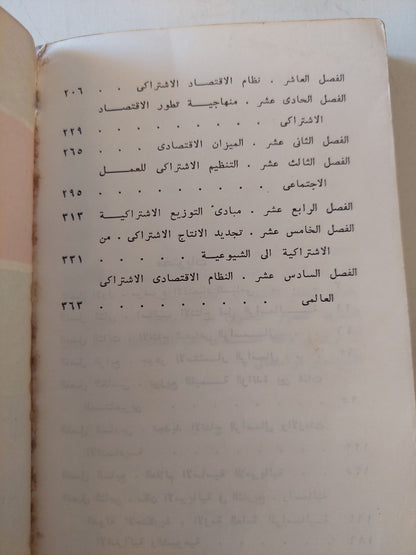 الفصل العاشر . نظام الاقتصاد الاشتراكى . . ٢٠٦
الفصل الحادى عشر . منهاجية تطور الاقتصاد
الاشتراكى . . . . . . . . . ٢٢٩
الفصل الثانى عشر . الميزان الاقتصادى . . ٢٦٥
الفصل الثالث عشر . التنظيم الاشتراكى للعمل
الاجتماعى . . . . . . . . ٢٩٥
الفصل الرابع عشر . مبادئ التوزيع الاشتراكية ٣١٣
الفصل الخامس عشر . تجديد الانتاج الاشتراكى . من
الاشتراكية الى الشيوعية . . . . . ٣٣١
الفصل السادس عشر . النظام الاقتصادى الاشتراكى
العالمى . . . . . . . . ٣٦٣